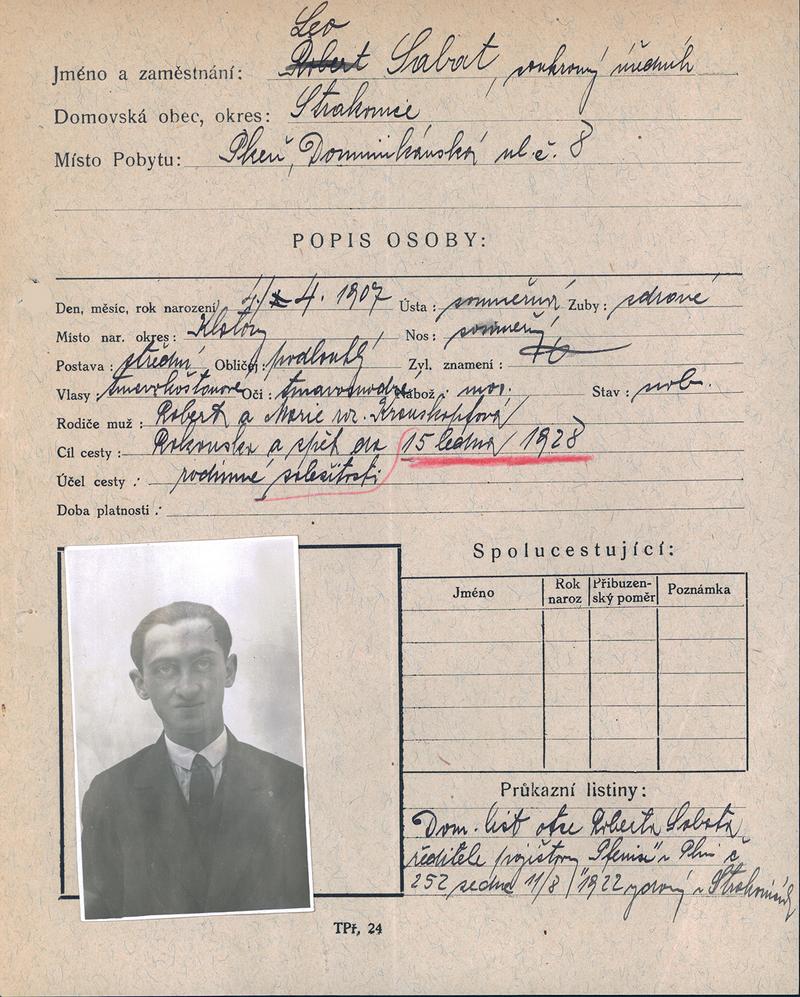 Leo
Jméno a zaměstnání: Robert Sabat, soukromý úředník
Domovská obec, okres: Strakonice
Místo Pobytu: Plzeň, Dominikánská ul. č. 8
POPIS OSOBY:
Den, měsíc, rok narození 4. 1907 Ústa: souměrná Zuby: zdravé
Místo nar. okres: Klatovy Nos: souměrný
Postava: střední Obličej: podlouhlý Zvl. znamení:
Vlasy: tmavokaštanové Oči: tmavomodré Nábož.: mos. Stav: svob.
Rodiče muž: Robert a Marie roz. Krauskopfová
Cíl cesty: Rakousko a zpět do 15 ledna 1928
Účel cesty: rodinné záležitosti
Doba platnosti:
Spolucestující:
Jméno Rok naroz Příbuzenský poměr Poznámka
Průkazní listiny:
Dom. list otce Roberta Sabata,
ředitele pojišťovny v Plzni č
252 ze dne 11/8 1922 vydaný v Strakonicích
TPř, 24